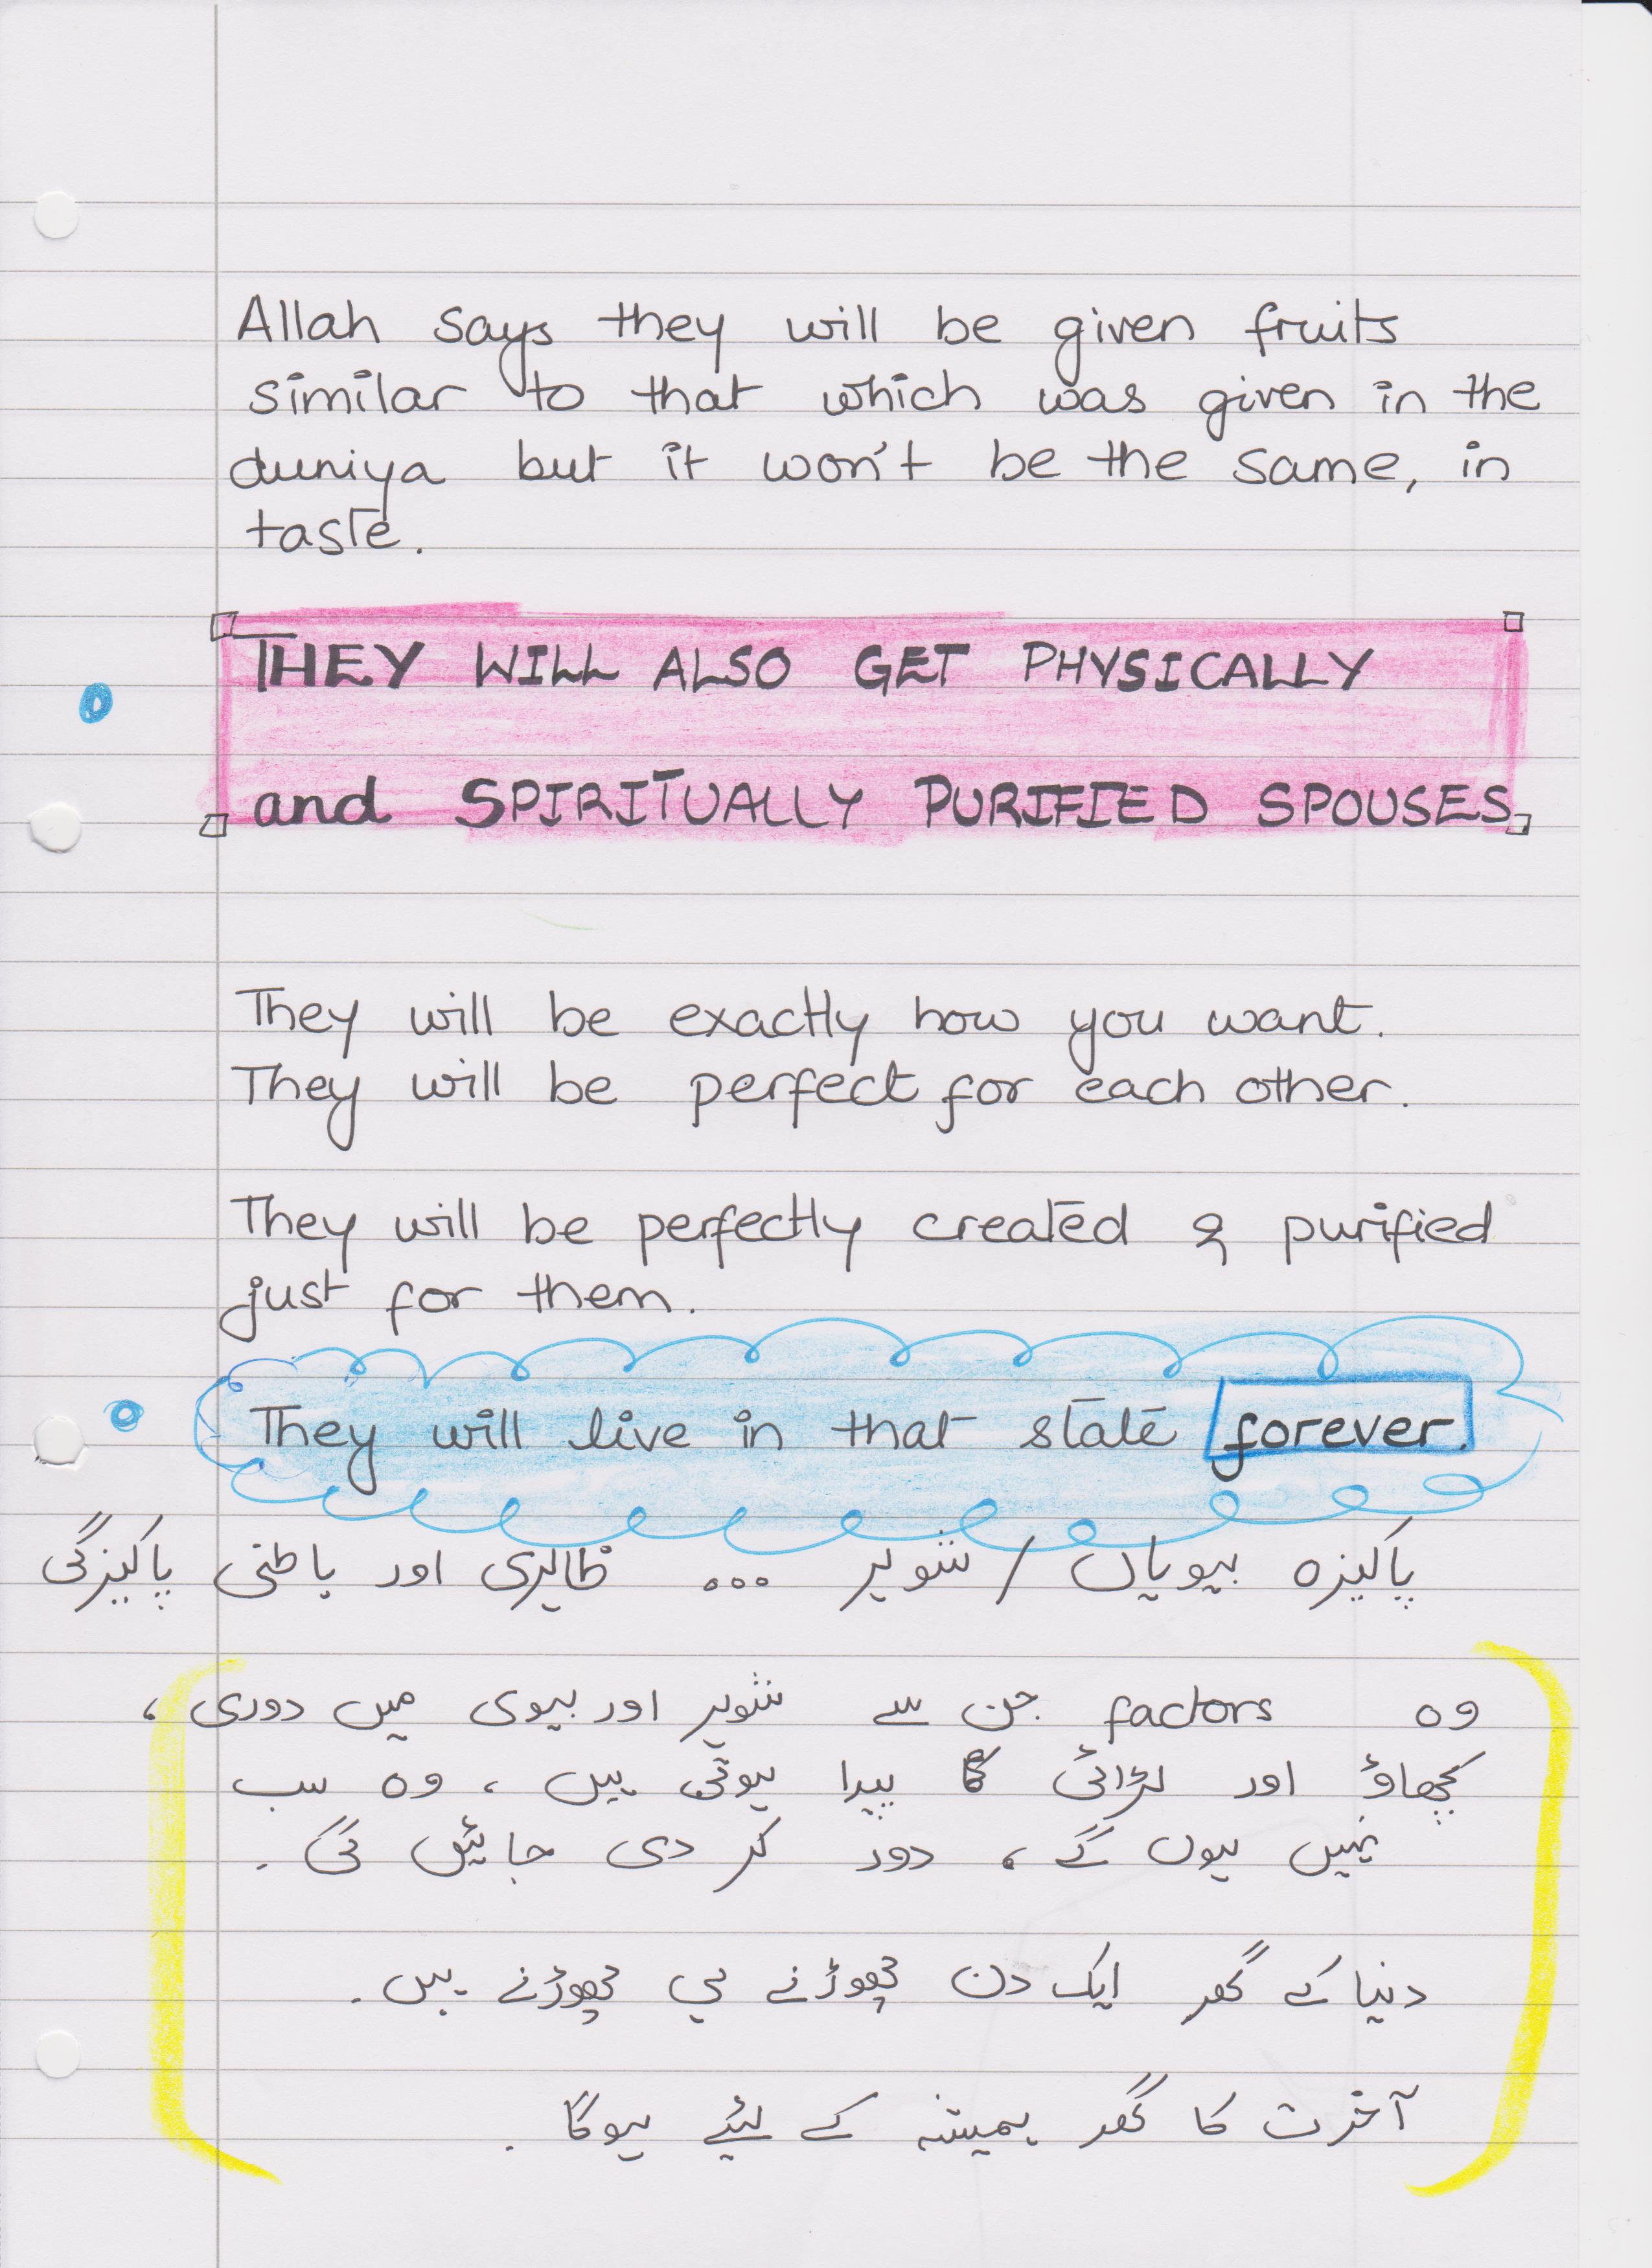 Allah says they will be given fruits
similar to that which was given in the
duniya but it won't be the same, in
taste.
THEY WILL ALSO GET PHYSICALLY
and SPIRITUALLY PURIFIED SPOUSES
They will be exactly how you want.
They will be perfect for each other.
They will be perfectly created & purified
just for them.
They will live in that state forever.
پاکیزہ بیویاں / شوہر ... ظاہری اور باطنی پاکیزگی
وہ factors جن سے شوہر اور بیوی میں دوری ،
کچھاؤ اور لڑائی پیدا ہوتی ہیں ، وہ سب
نہیں ہوں گے ، دور کر دی جائیں گی ۔
دنیا کے گھر ایک دن چھوڑنے ہی چھوڑنے ہیں ۔
آخرت کا گھر ہمیشہ کے لیٔے ہوگا ۔